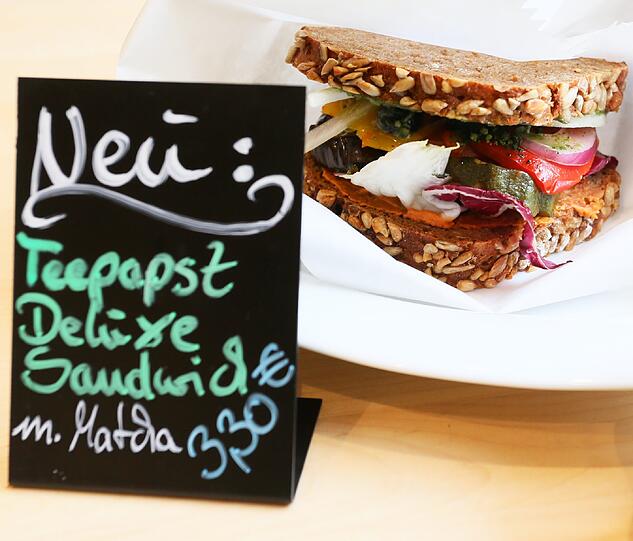 Neu:
Teepapst
Deluxe
Sandwich €
m. Matcha 3,30